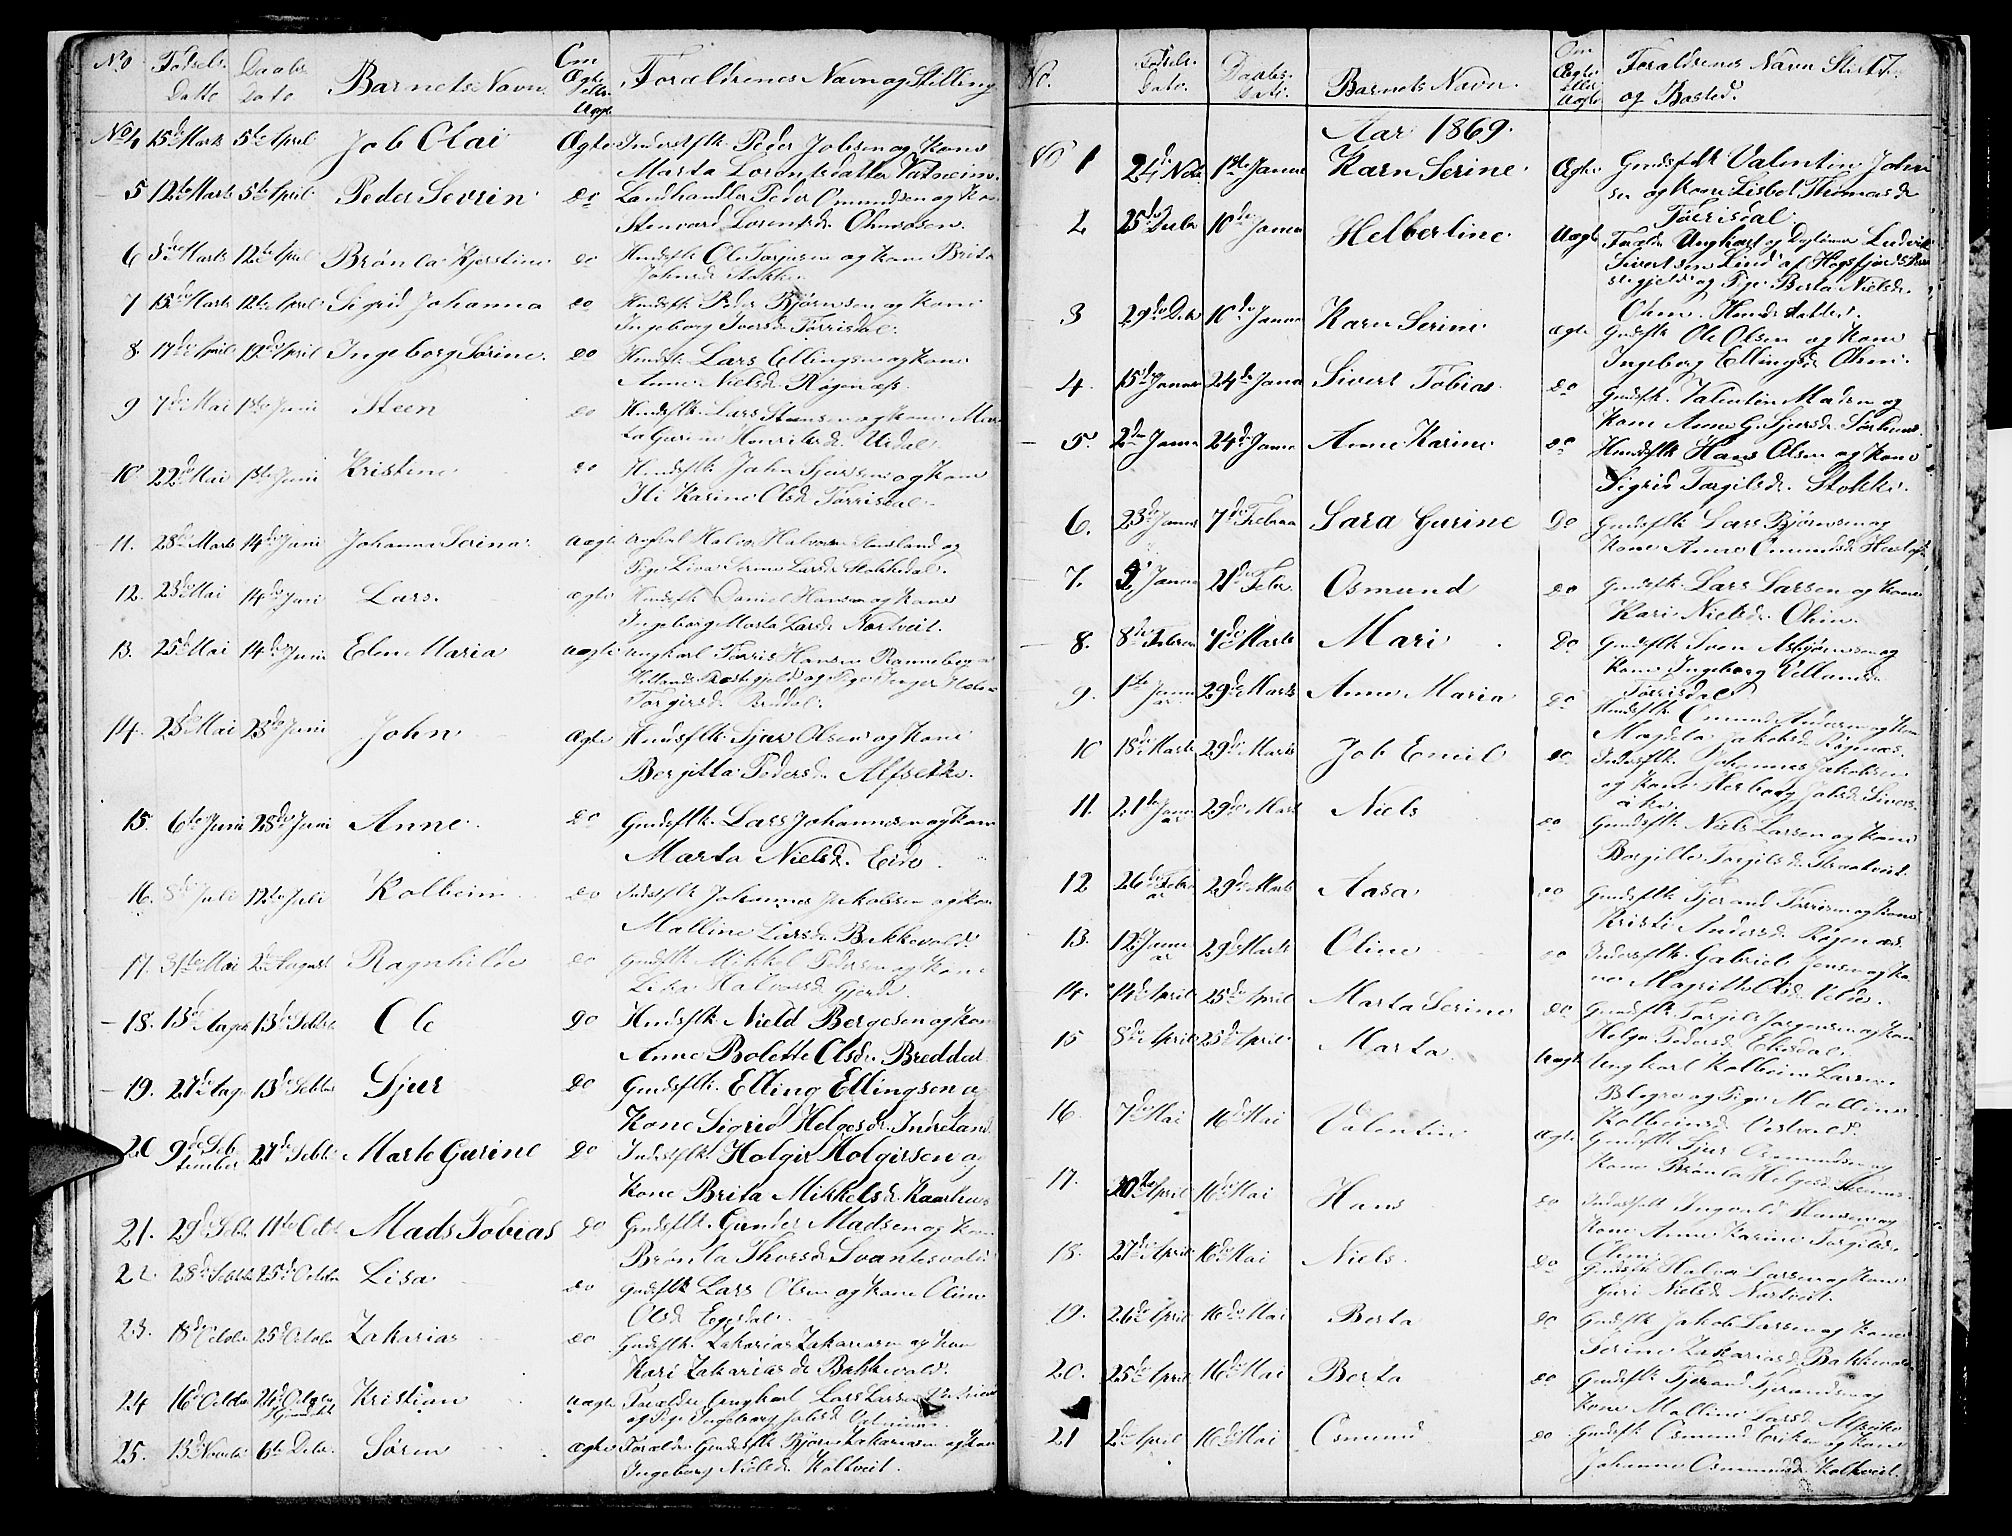 No Fødsels Daabs Barnets Navn Om Forældrenes Navn og Stilling
Datte Dato Ægte eller Uægte
No 4 15de Marts 5te April Job Olai Ægte Inderstflk. Peder Jobsen og Kone
Marta Lorentsdatter
5 12te Marts 5te April Peder Severin do Landhandler Peder Omundsen og Kone
Lorentsd.
6 Marts 12te April Brønla Kjerstine do Huusflk. Ole og Kone Brita
Johnsd. Stokke
7 15de Marts 12te April Sigrid Johanna do Huusflk. Peder Bjørnsen og Kone
Ingeborg Iversd. Tørrisdal.
8. 17de April 19de April Ingeborg Serine. do Huusflk. Lars Ellingsen og Kone
Anne Nielsd. Røgenæs.
9 7de Mai 1ste Juni Steen do Huusflk. Lars Steensen og Kone Mar
ta Gurine Henriksd. Urdal
10 22de Mai 1ste Juni Kristine do Huusflk. John Sjursen og Kone
Karine Olsd. Tørrisdal.
11. 28de Marts 14de Juni Johanna Serina. Uægte Ungkarl Halvor Halvorsen og
Pige Serine Larsd. Stokkedal.
12. 23de Mai 14de Juni Lars. Ægte Huusflk. Daniel Hansen og Kone
Ingeborg Marta Larsd. Nortveit.
13. 25de Mai 14de Juni Elen Maria Uægte Ungkarl Tørris Hansen
Præstegjeld og Pige Inger
Torgersd.
14. 23de Mai 23de Juni John Ægte Huusflk. Sjur Olsen og Kone
Bergitta Pedersd. Alfsette.
15. 6te Juni 28de Juni Anne. do Gaardsflk. Lars Johannesen og Kone
Marta Nielsd. Eide
16. 8de Juli 12te Juli Kolbein do Inderstflk. Johannes Jakobsen og Kone
Malline Larsd. Bakkevold
17. 31te Mai 2de August Ragnhilde do Gaardsflk. Mikkel Pedersen og Kone
Halvorsd. Gjerde.
18. 13de August 13de Sebtbr Ole do Huusflk. Nield Børgesen og Kone
Anne Bolette Olsdr. Breddal
19. 27de Aug. 13de Sebtbr Sjur do Gaardsflk. Elling Ellingsen og
Kone Sigrid Helgesd. Indreland
20 9de Seb 27de Sebtb. Marte Gurine do Inderstflk. Holgir Holgirsen og
tember
Kone Brita Mikkelsd. Kaarhus
21. 29de Sebtb. 11te Octb. Mads Tobias do Gaardsflk. Gunder Madsen og Kone
Brønla Thorsd. Svantesvold
22. 28de Sebtbr 25de October Lisa do Gaardsflk. Lars Olsen og Kone Oline
Olsd
23. 18de October 25de October Zakarias do Gaardsflk. Zakarias Zakariasen og Kone
Kari Zakariasd. Bakkevold.
24 16de October Kristian Uægte Forældre Ungkarl Lars Larsen
og Pige Ingeborg Jobsd.
25. 13de Novbr. 6te Debr. Søren Ægte Forældre Gaardsflk. Bjørn Zakariasen og Kone
Ingeborg Nielsd. Koltveit.
No. Fødsels Daabs Barnets Navn. Om Forældrenes Navn 7
Dato. Dato. Ægte eller Uægte og Bosted.
Aar 1869.
No 1 24de Novb. 1ste Januar Karn Serine. Ægte Gaardsfolk Valentin John
sen og Kone Lisbet Thomasd.
Tørrisdal
2 25de Decbr 10de Januar Helbertine. Uægte Forældre Ungkarl og Ludvik
Sivertsen Lind af Høgsfjord
og Pige Berta Nielsd.
Ohm.
3 29de Deb 10de Januar Karn Serine Ægte Gaardsflk. Ole Olsen og Kone
Ingeborg Ellingsd. Ohm.
4. 15de Januar 24de Januar Sivert Tobias. do Gaardsflk. Valentin Madsen og
Kone Anne G. Sjursd.
5. 2den Januar 24de Januar Anne Karine do Huusflk. Hans Olsen og Kone
Sigrid Torgilsd. Stokke.
6. 23de Januar 7de Februar Sara Gurine Do Gaardsflk. Lars Bjørnsen og
Kone Anne Omundsd.
7. Januar 21de Febr Osmund do Gaardsflk. Lars Larsen og Kone
Kari Nielsd. Ohm.
8. 8de Februar 7de Marts Mari Do Gaardsflk. Sven Asbjørnsen og
Kone Ingeborg
Tørrisdal
9. 1ste Januar 29de Marts Anne Maria do Huusflk. Omund Andersen og Kone
Magdela Jakobsd. Røgenæs.
10 18de Marts 29de Marts Job Emil do Inderstflk. Johannes Jakobsen
og Kone Herborg Jobsd.
11. 21de Januar 29de Marts Niels do Gaardsflk. Niels Larsen og Kone
Bergitte Torgilsd.
12 26de Februar 29de Marts Aasa do Gaardsflk. Tjerand Tørrisen og Kone
Kristi Andersd. Røgenæs.
13. 12te Januar 29de Marts Oline do Inderstflk. Gabriel Jensen og Ko
ne Magritte Olsd.
14. 14de April 25de April Marta Serine do Gaardsflk. Torgils Jørgensen og Kone
Helga Pedersd.
15 8de April 25de April Marta Uægte Ungkarl Kolbein Larsen
og Pige Malline
Kolbeinsd.
16. 7de Mai 16de Mai Valentin Ægte Gaardsflk. Sjur Osmundsen og
Kone Brønla Helgesd.
17. 30te April 16de Mai Hans do Inderstfolk Ingvald Hansen og
Kone Anne Karine Torgilsd.
Ohm.
18. 27de April 16de Mai Niels. Do Gaardsflk. Halvor Larsen og Kone
Guri Nielsd. Nortveit.
19. 26de April 16de Mai Berta do Gaardsflk. Jakob Larsen og Kone
Serine Zakariasd. Bakkevold
20. 25de April 16de Mai Berta do Gaardsflk. Tjerand Tjerandsen og
Kone Malline Larsd.
21 2de April 16de Mai Osmund do Gaardsflk. Osmund Eriksen og Kone
Johanne Osmundsd. Koltveit.